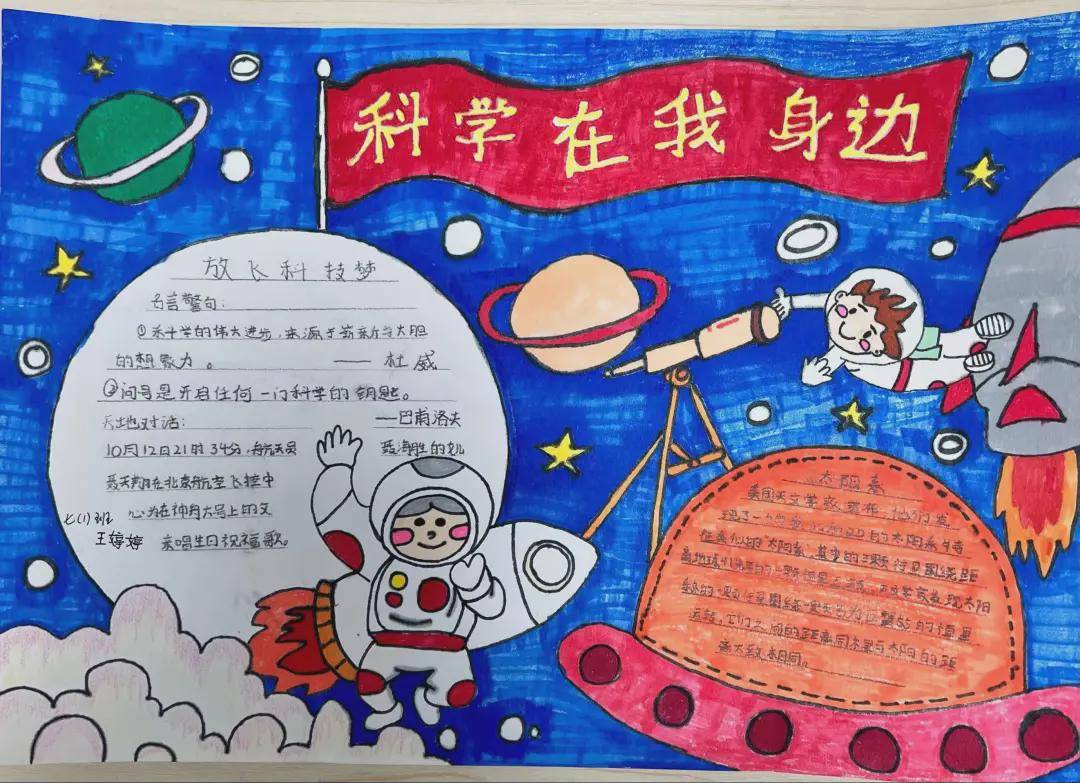 科学在我身边
放飞科技梦
名言警句:
①科学的伟大进步,来源于崭新与大胆
的想象力。——杜威
②问号是开启任何一门科学的钥匙。
——巴甫洛夫
天地对话:
10月12日21时34分,航天员
聂海胜的女儿
聂天翔在北京航空飞控中
心为在神舟六号上的父
亲唱生日祝福歌。
七(1)班
王婷婷
太阳系
美国天文学家宣布,他们发
现了一个
的太阳系
运转,它们之间的距离同水星与太阳的距
离大致相同。